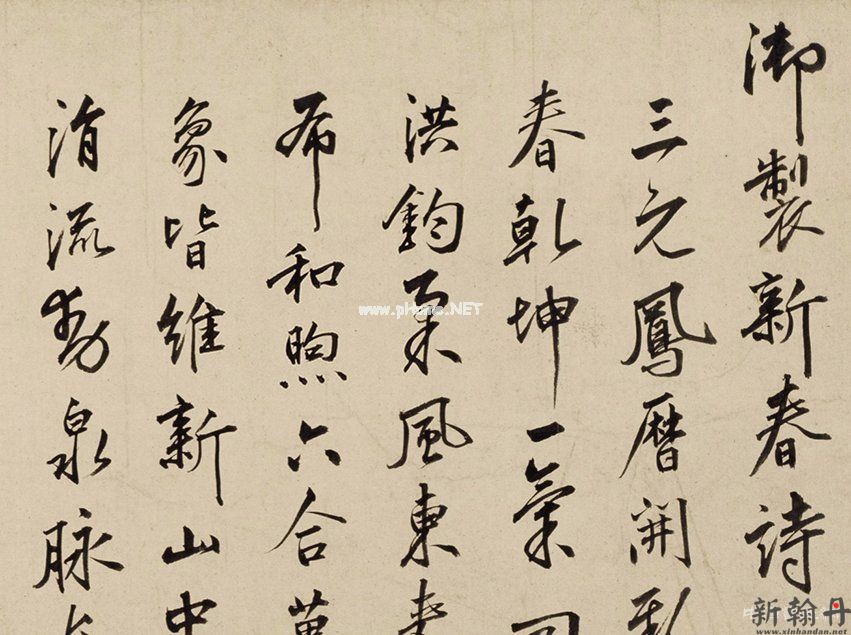 御製新春詩
三元鳳暦開
春乾坤一氣
洪鈞条風東
布和煦六合萬
象皆維新山中
涓流動泉脉
www.phome.NET
新翰丹
www.xinhandan.net